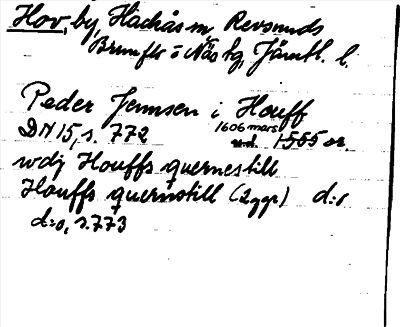 Hov, by, Hackås sn, Revsunds
Brunflo o Näs tg, Jämtl. l.
Peder Jennsen i Houff
1606 mars
DN 15, s. 772 u.d. 1555 or.
wdj Houffs quernestill
Houffs quernstill (2 ggr) d:o
d:o, s. 773